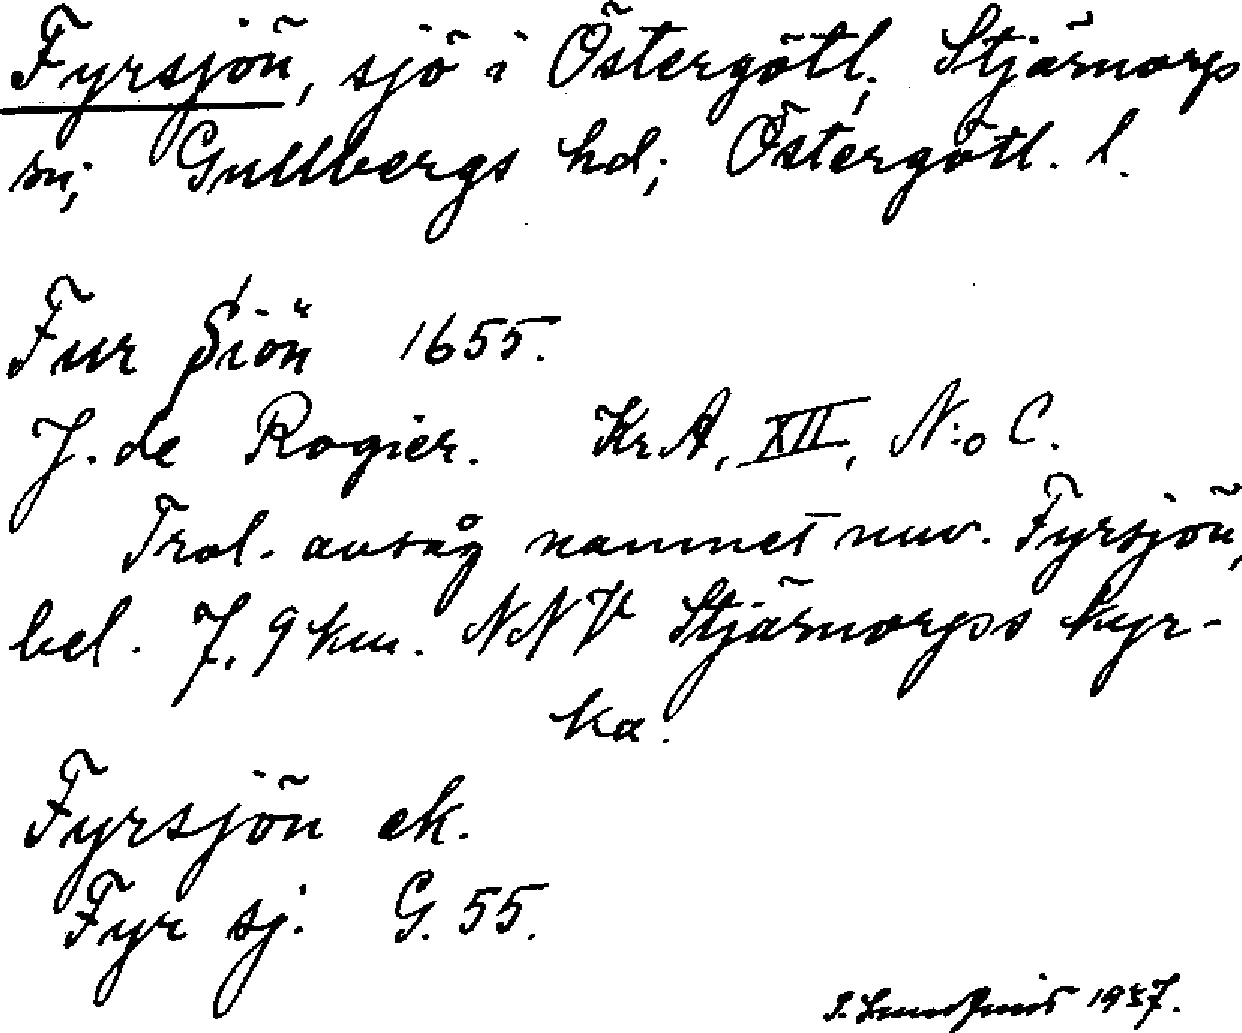 Fyrsjön, sjö i Östergötl; Stjärnorps
sn; Gullbergs hd; Östergötl. l.
Fur Siön 1655.
J. de Rogier. Kr.A, XII, N:o C.
Trol. avsåg namnet nuv. Fyrsjön,
bel. 7,9 km. NNV Stjärnorps kyr-
ka.
Fyrsjön ek.
Fyr sj. G. 55.
S. Lundquist 1937.